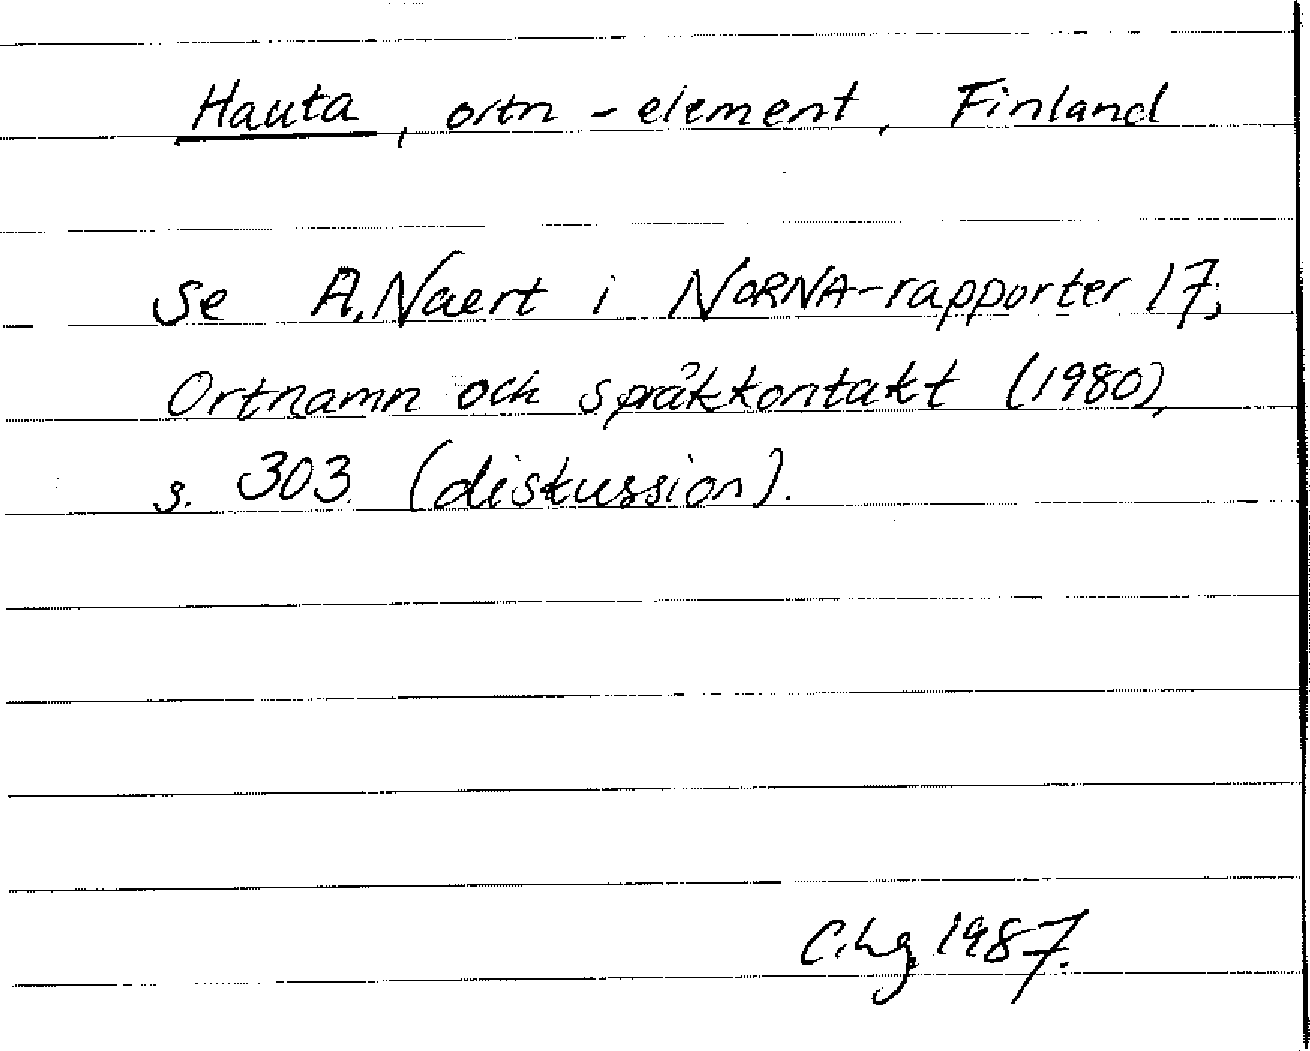 Hauta, ortn - element, Finland
se A. Naert i NORNA-rapporter 17,
Ortnamn och språkkontakt (1980),
s. 303 (diskussion).
C.hg. 1987.